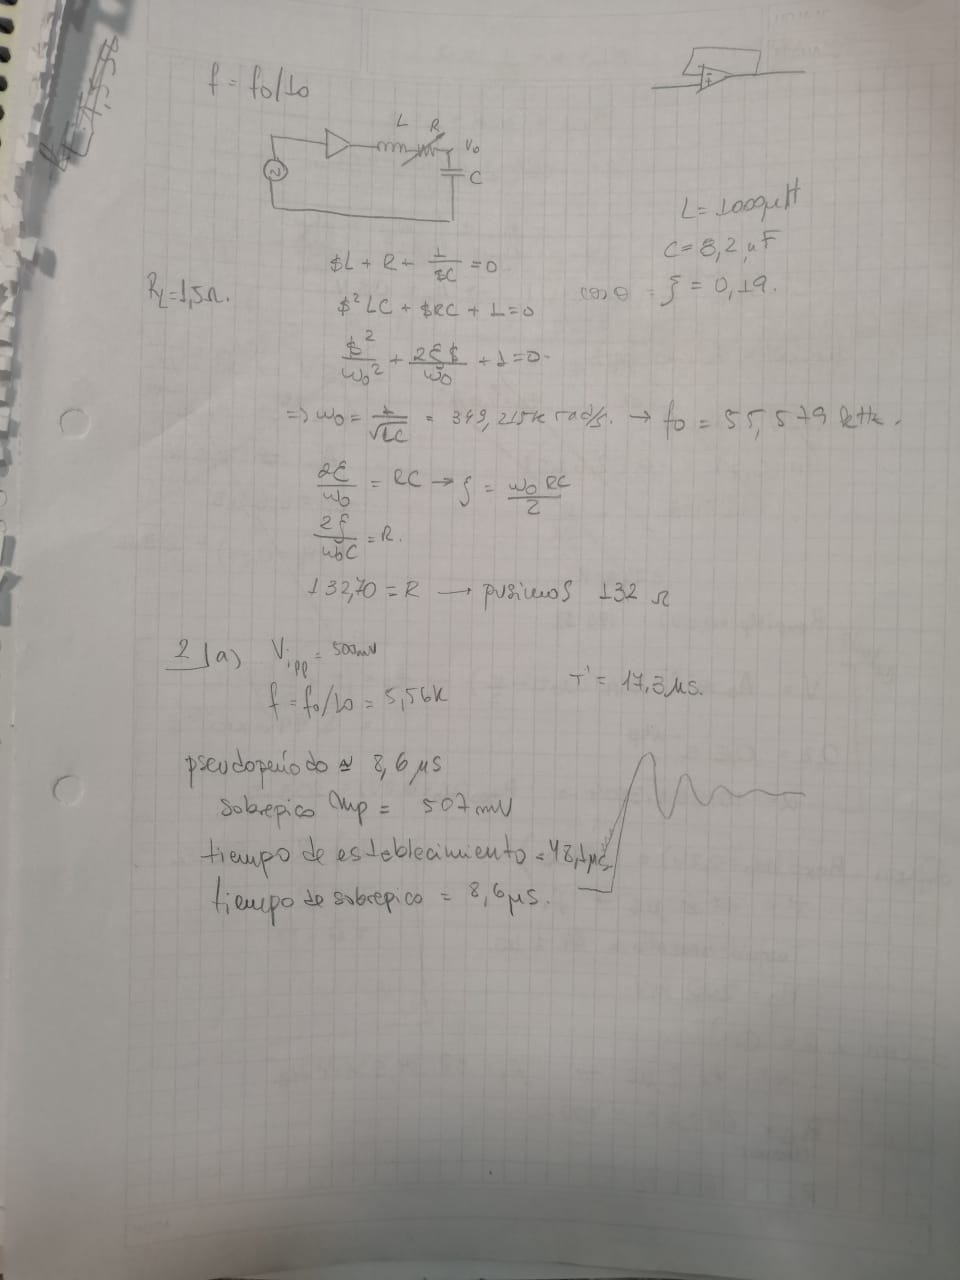 f = fo/10
L R Vo
C
L = 1000μH
C = 8,2 nF
cos θ = ξ = 0,19.
RL=1,5Ω.
$L + R + 1/$C = 0
$² LC + $RC + 1=0
$²/ωo² + 2ξ$/ωo + 1=0
=> ωo = 1/√LC = 349,215k rad/s. → fo = 55,579 kHz.
2ξ/ωo = RC → ξ = ωo RC/2
2ξ/ωoC = R.
132,70 = R → pusimos 132 Ω
2 (a) Vipp = 500mV
f = fo/10 = 5,56k
T' = 17,3 μs.
pseudoperíodo ≃ 8,6 μs
sobrepico Mp = 507 mV
tiempo de establecimiento = 48,1μs
tiempo de sobrepico = 8,6 μs.